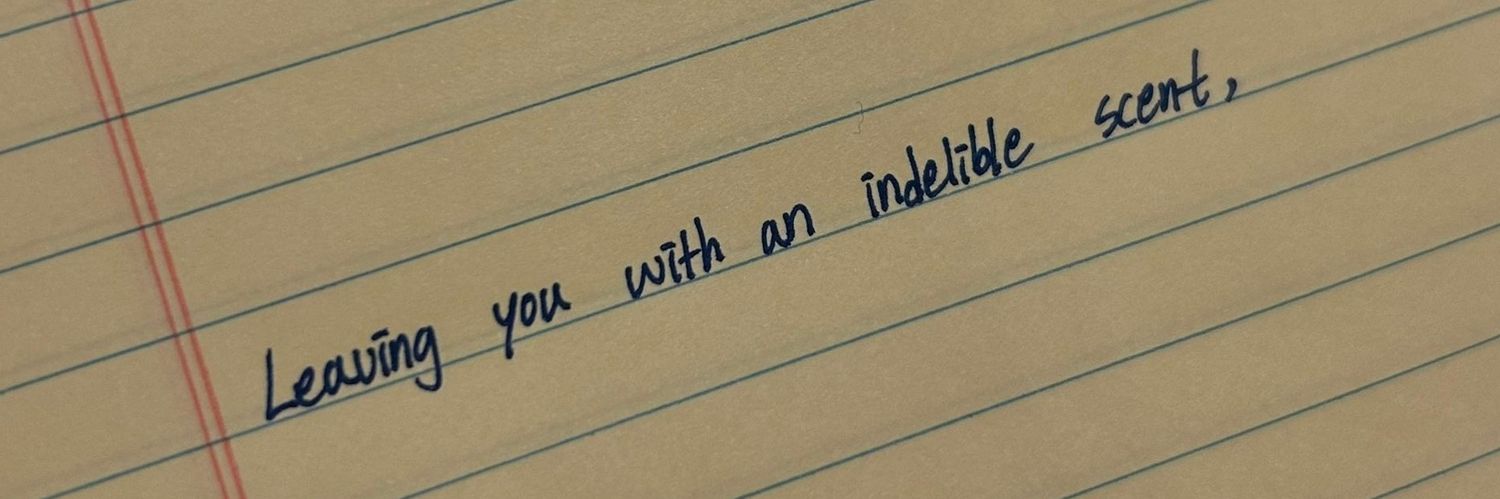 Leaving you with an indelible scent,